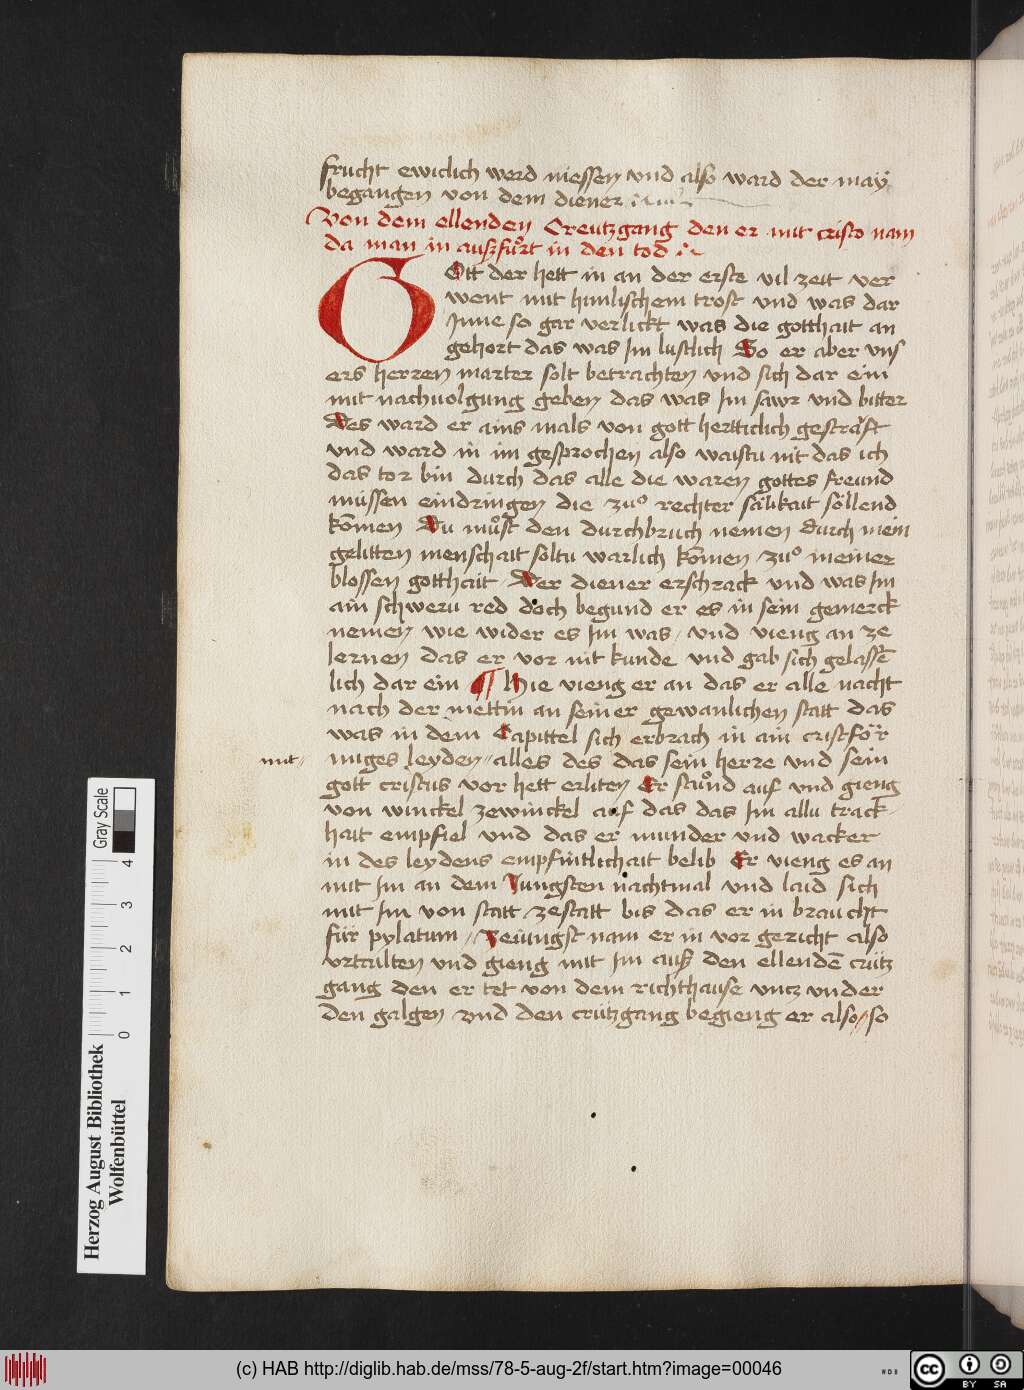 frucht ewiclich werd niessen vnd also ward der may
begangen von dem diener
Von dem ellenden Creutzgang den er mit cristo nam
da man in außfuͦrt in den tod
GOtt der hett in an der erste vil zeit ver
went mit himlischem trost vnd was dar
Jnne so gar verlickt was die gotthait an
gehort das was Jm lustlich So er aber vns
ers herren marter solt betrachten vnd sich dar ein
mit nachuolgung geben das was Jm sawr vnd bitter
Des ward er ains mals von gott hertticlich gesträft
vnd ward in im gesprochen also waistu nit das ich
das tor bin durch das alle die waren gottes freund
müssen eindringen die zuͦ rechter sälikait söllend
kōmen Du muͦst den durchbruch nemen durch mein
gelitten menschait soltu warlich kōmen zuͦ meiner
blossen gotthait Der diener erschrack vnd was Jm
ain schweru red doch begund er es in sein gemerck
nemen wie wider es Jm was / vnd vieng an ze
lernen das er vor nit kunde vnd gab sich gelassē
lich dar ein ¶ Hie vieng er an das er alle nacht
nach der mettin an seiner gewanlichen statt das
was in dem Capittel sich erbrach in ain cristför
mit //
miges leyden // alles des das sein herre vnd sein
gott cristus vor hett erliten Er stuͦnd auf vnd gieng
von winckel zewinckel auf das das Jm allu track
hait empfiel vnd das er munder vnd wacker
in des leydens empfintlichait belib Er vieng es an
mit Jm an dem Jungsten nachtmal vnd laid sich
mit Jm von statt zestatt bis das er in braucht
für pylatum // Zeiungst nam er in vor gericht also
vrtailten vnd gieng mit Jm auß den ellendē crütz
gang den er tet von dem richthause vncz vnder
den galgen vnd den crützgang begieng er also // so
Herzog August Bibliothek
Wolfenbüttel
0 1 2 3 4
Gray Scale
(c) HAB http://diglib.hab.de/mss/78-5-aug-2f/start.htm?image=00046
WDB
cc BY SA